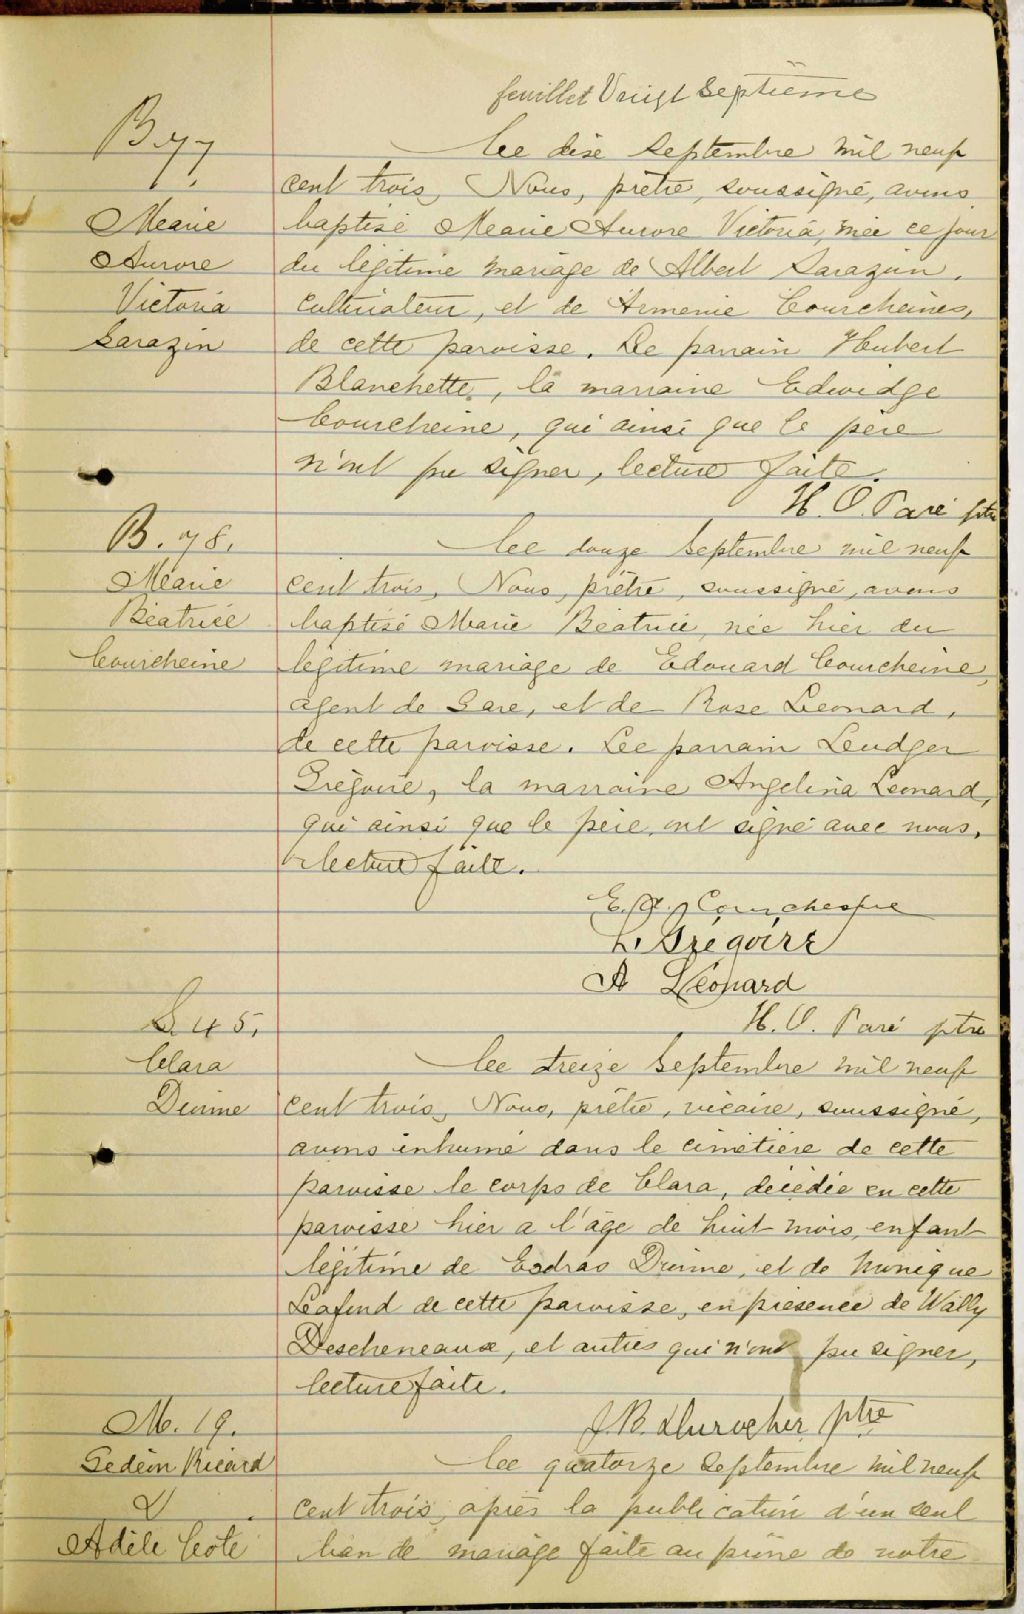 feuillet Vingt Septième
B 77
Marie
Aurore
Victoria
Sarazin
Le dix Septembre mil neuf
cent trois, Nous, prêtre, soussigné, avons
baptisé Marie Aurore Victoria, née ce jour
du légitime mariage de Albert Sarazin,
cultivateur, et de Armenie Courcheines,
de cette paroisse. Le parrain Hubert
Blanchette, la marraine Edwidge
Courcheine, qui ainsi que le père
n'ont pu signer, lecture faite.
H. O. Paré ptre
B. 78.
Marie
Béatrice
Courcheine
Le douze Septembre mil neuf
cent trois, Nous, prêtre, soussigné, avons
baptisé Marie Béatrice, née hier du
légitime mariage de Edouard Courcheine,
agent de Gare, et de Rose Leonard,
de cette paroisse. Le parrain Leudger
Grégoire, la marraine Angelina Leonard,
qui ainsi que le père, ont signé avec nous,
lecture faite.
Courchesne
L. Grégoire
A Léonard
H. O. Paré ptre
S. 45.
Clara
Le treize Septembre mil neuf
cent trois, Nous, prêtre, vicaire, soussigné,
avons inhumé dans le cimetière de cette
paroisse le corps de Clara, décédée en cette
paroisse hier a l'âge de huit mois, enfant
légitime de Esdras et de Monique
de cette paroisse, en presence de Wally
Descheneaux, et autres qui n'ont pu signer,
lecture faite.
J. B. Durocher ptre
M. 19.
Gedéon Ricard
&
Adèle Coté
Le quatorze Septembre mil neuf
cent trois, après la publication d'un seul
ban de mariage faite au prône de notre